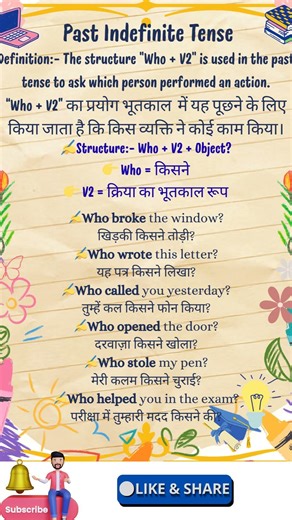 Past Indefinite Tense
Definition:- The structure "Who + V2" is used in the past
tense to ask which person performed an action.
"Who + V2" का प्रयोग भूतकाल में यह पूछने के लिए
किया जाता है कि किस व्यक्ति ने कोई काम किया।
✍️Structure:- Who + V2 + Object?
👉 Who = किसने
👉 V2 = क्रिया का भूतकाल रूप
✍️Who broke the window?
खिड़की किसने तोड़ी?
✍️Who wrote this letter?
यह पत्र किसने लिखा?
✍️Who called you yesterday?
तुम्हें कल किसने फोन किया?
✍️Who opened the door?
दरवाज़ा किसने खोला?
✍️Who stole my pen?
मेरी कलम किसने चुराई?
✍️Who helped you in the exam?
परीक्षा में तुम्हारी मदद किसने की?
Subscribe
LIKE & SHARE